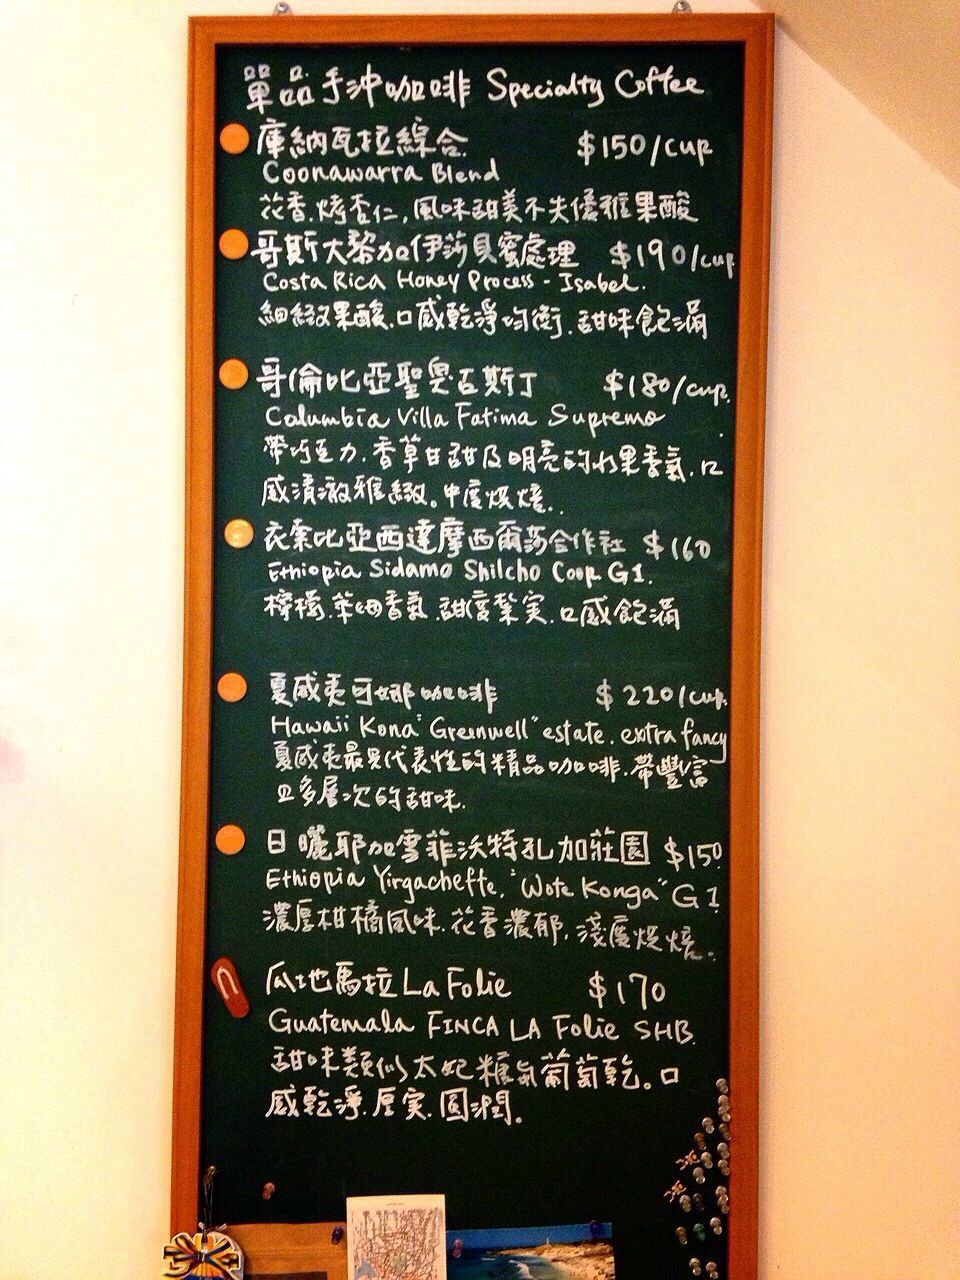 單品手沖咖啡 Specialty Coffee
庫納瓦拉綜合 $150/cup
Coonawarra Blend
花香.烤杏仁,風味甜美不失優雅果酸
哥斯大黎加伊莎貝蜜處理 $190/cup
Costa Rica Honey Process - Isabel.
細緻果酸.口感乾淨均衡.甜味飽滿
哥倫比亞聖奧古斯丁 $180/cup.
Columbia Villa Fatima Supremo
帶巧克力.香草甘甜及明亮的水果香氣.口
感清澈雅緻。中度烘焙..
衣索比亞西達摩西爾莎合作社 $160
Ethiopia Sidamo Shilcho Coop G1.
檸檬.莘細香氣.甜度紮実.口感飽滿
夏威夷可娜咖啡 $220/cup.
Hawaii Kona "Greenwell" estate. extra fancy
夏威夷最具代表性的精品咖啡.帶豐富
且多層次的甜味.
日曬耶加雪菲沃特孔加莊園 $150
Ethiopia Yirgacheffe, "Wote Konga" G1
濃厚柑橘風味.花香濃郁.淺度烘焙.
瓜地馬拉 La Folie $170
Guatemala FINCA LA Folie SHB.
甜味類似太妃糖與葡萄乾。口
感乾淨.厚実.圓潤。